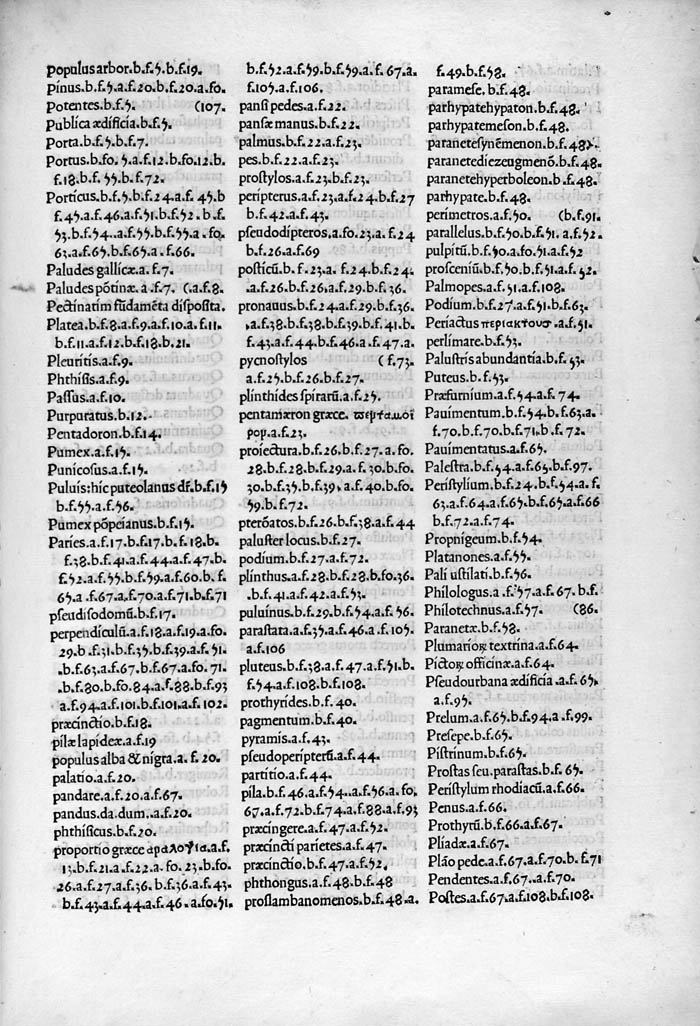 populus arbor.b.f.5.b.f.19.
pinus.b.f.5.a.f.20.b.f.20.a.fo.
Potentes.b.f.5. (107.
Publica ædificia.b.f.5.
Porta.b.f.5.b.f.7.
Portus.b.fo.5.a.f.12.b.fo.12.b.
f.18.b.f.55.b.f.72.
Porticus.b.f.5.b.f.24.a.f.45.b
f.45.a.f.46.a.f.51.b.f.52.b.f.
53.b.f.54..a.f.55.b.f.55.a.fo.
63.a.f.65.b.f.65.a.f.66.
Paludes gallicæ.a.f.7.
Paludes põtinæ.a.f.7. (.a.f.8.
Pectinatim fũdamẽta disposita.
Platea.b.f.8.a.f.9.a.f.10.a.f.11.
b.f.11.a.f.12.b.f.18.b.21.
Pleuritis.a.f.9.
Phthisis.a.f.9.
Passus.a.f.10.
Purpuratus.b.12.
Pentadoron.b.f.14.
Pumex.a.f.15.
Punicosus.a.f.15.
Puluis:hic puteolanus dr̃.b.f.15
b.f.55.a.f.56.
Pumex põpeianus.b.f.15.
Paries.a.f.17.b.f.17.b.f.18.b.
f.38.b.f.41.a.f.44.a.f.47.b.
f.52.a.f.55.b.f.59.a.f.60.b.f.
65.a.f.67.a.f.70.a.f.71.b.f.71
pseudisodomũ.b.f.17.
perpendiculũ.a.f.18.a.f.19.a.fo.
29.b.f.31.b.f.35.b.f.39.a.f.51.
.b.f.63.a.f.67.b.f.67.a.fo.71.
.b.f.80.b.fo.84.a.f.88.b.f.93
a.f.94.a.f.101.b.f.101.a.f.102.
præcinctio.b.f.18.
pilæ lapideæ.a.f.19
populus alba & nigra.a.f.20.
palatio.a.f.20.
pandare.a.f.20.a.f.67.
pandus.da.dum..a.f.20.
phthisicus.b.f.20.
proportio græce αραλογια.a.f.
13.b.f.21.a.f.22.a.fo.23.b.fo.
26.a.f.27.a.f.36.b.f.36.a.f.43.
b.f.43.a.f.44.a.f.46.a.fo.51.
b.f.52.a.f.59.b.f.59.a.f.67.a.
f.105.a.f.106.
pansi pedes.a.f.22.
pansæ manus.b.f.22.
palmus.b.f.22.a.f.23.
pes.b.f.22.a.f.23.
prostylos.a.f.23.b.f.23.
peripterus.a.f.23.a.f.24.b.f.27
b.f.42.a.f.43.
pseudodipteros.a.fo.23.a.f.24
b.f.26.a.f.69
posticũ.b.f.23.a.f.24.b.f.24.
.a.f.26.b.f.26.a.f.29.b.f.36.
pronaus.b.f.24.a.f.29.b.f.36.
.a.f.38.b.f.38.b.f.39.b.f.41.b.
f.43.a.f.44.b.f.46.a.f.47.a.
pycnostylos (f.73.
a.f.25.b.f.26.b.f.27.
plinthides spirarũ.a.f.25.
pentamæron græce. πεμταμοι
ρορ.a.f.23.
proiectura.b.f.26.b.f.27.a.fo.
28.b.f.28.b.f.29.a.f.30.b.fo.
30.b.f.35.b.f.39.a.f.40.b.fo.
59.b.f.72.
pterõatos.b.f.26.b.f.38.a.f.44
paluster locus.b.f.27.
podium.b.f.27.a.f.72.
plinthus.a.f.28.b.f.28.b.fo.36.
.b.f.41.a.f.42.a.f.53.
puluinus.b.f.29.b.f.54.a.f.56.
parastata.a.f.35.a.f.46.a.f.105.
a.f.106
pluteus.b.f.38.a.f.47.a.f.51.b.
f.54.a.f.108.b.f.108.
prothyrides.b.f.40.
pagmentum.b.f.40.
pyramis.a.f.43.
pseudoperipterũ.a.f.44.
partitio.a.f.44.
pila.b.f.46.a.f.54.a.f.56.a.fo.
67.a.f.72.b.f.74.a.f.88.a.f.93
præcingere.a.f.47.a.f.52.
præcincti parietes.a.f.47.
præcinctio.b.f.47.a.f.52.
phthongus.a.f.48.b.f.48
proslambanomenos.b.f.48.a.
f.49.b.f.58.
paramese.b.f.48.
parhypatehypaton.b.f.48.
parhypatemeson.b.f.48.
paranetesynẽmenon.b.f.48.
paranetediezeugmenõ.b.f.48.
paranetehyperboleon.b.f.48.
parhypate.b.f.48.
perimetros.a.f.50. (b.f.91.
parallelus.b.f.50.b.f.51.a.f.52.
pulpitũ.b.f.50.a.fo.51.a.f.52
prosceniũ.b.f.50.b.f.51.a.f.52.
Palmopes.a.f.51.a.f.108.
Podium.b.f.27.a.f.51.b.f.63.
Periactus περιακτουσ.a.f.51.
perlimare.b.f.53.
Palustris abundantia.b.f.53.
Puteus.b.f.53.
Præfurnium.a.f.54.a.f.74.
Pauimentum.b.f.54.b.f.63.a.
f.70.b.f.70.b.f.71.b.f.72.
Pauimentatus.a.f.65.
Palestra.b.f.54.a.f.65.b.f.97.
Peristylium.b.f.24.b.f.54.a.f.
63.a.f.64.a.f.65.b.f.65.a.f.66
b.f.72.a.f.74.
Propnigeum.b.f.54.
Platanones.a.f.55.
Pali ustilati.b.f.56.
Philologus.a.f.57.a.f.67.b.f.
Philotechnus.a.f.57. (86.
Paranetæ.b.f.58.
Plumarioꝝ textrina.a.f.64.
Pictoꝝ officinæ.a.f.64.
Pseudourbana ædificia.a.f.65.
a.f.95.
Prelum.a.f.65.b.f.94.a.f.99.
Presepe.b.f.65.
Pistrinum.b.f.65.
Prostas seu parastas.b.f.65.
Peristylum rhodiacũ.a.f.66.
Penus.a.f.66.
Prothyrũ.b.f.66.a.f.67.
Pliadæ.a.f.67.
Plão pede.a.f.67.a.f.70.b.f.71
Pendentes.a.f.67..a.f.70.
Postes.a.f.67.a.f.108.b.f.108.